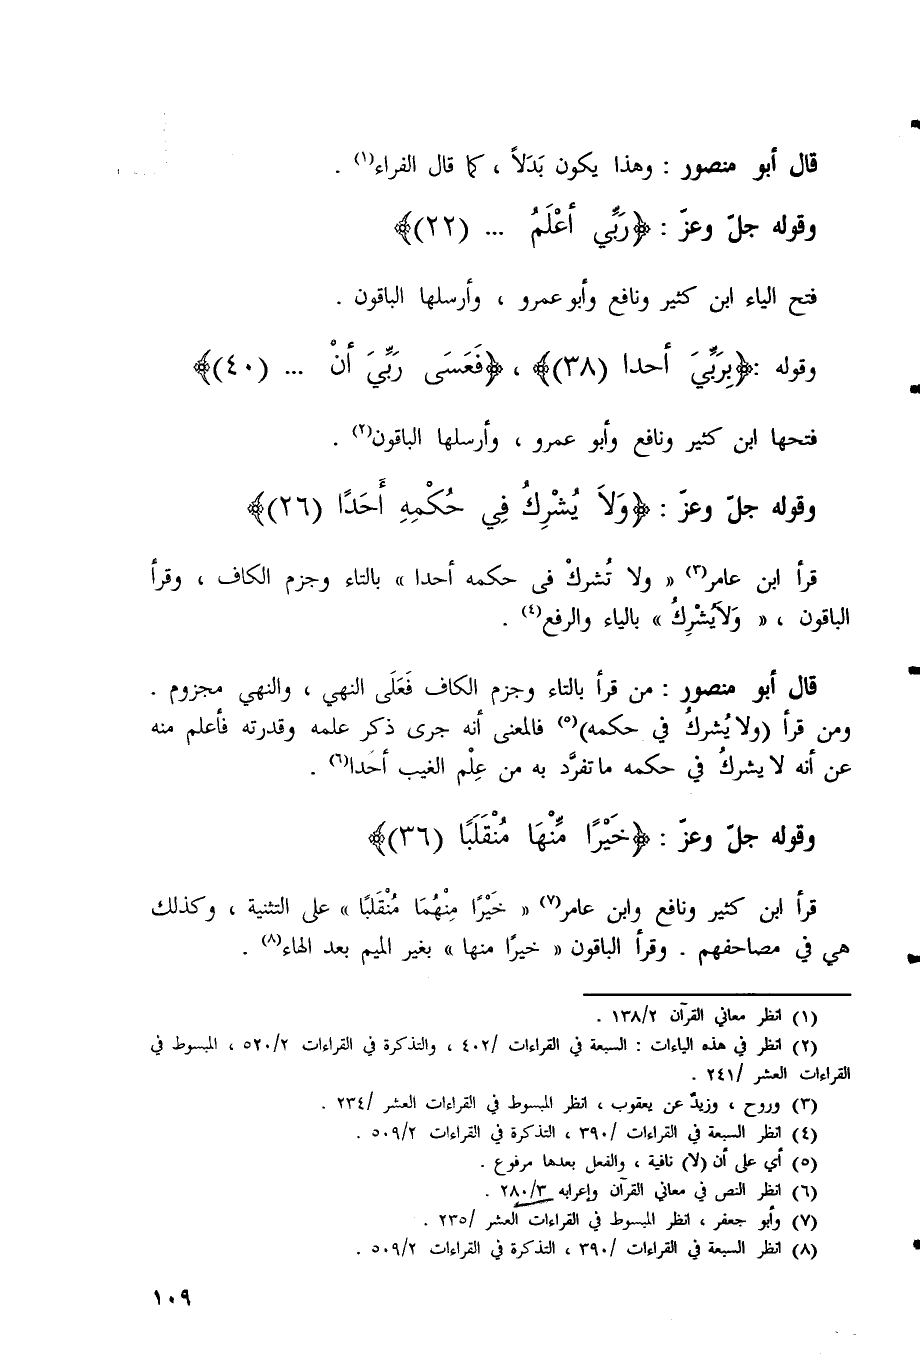 قال أبو منصور : وهذا يكون بَدَلاً ، كما قال الفراء(١) .
وقوله جلّ وعزّ : ﴿رَبِّي أَعْلَمُ ... (٢٢)﴾
فتح الياء ابن كثير ونافع وأبو عمرو ، وأرسلها الباقون .
وقوله :﴿بِرَبِّيَ أحدا (٣٨)﴾ ، ﴿فَعَسَى رَبِّيَ أنْ ... (٤٠)﴾
فتحها ابن كثير ونافع وأبو عمرو ، وأرسلها الباقون(٢) .
وقوله جلّ وعزّ : ﴿وَلاَ يُشْرِكُ فِي حُكْمِهِ أَحَدًا (٢٦)﴾
قرأ ابن عامر(٣) « ولا تُشركْ فى حكمه أحدا » بالتاء وجزم الكاف ، وقرأ
الباقون ، « وَلاَيُشْرِكُ » بالياء والرفع(٤) .
قال أبو منصور : من قرأ بالتاء وجزم الكاف فَعَلَى النهي ، والنهي مجزوم .
ومن قرأ (ولا يُشركُ في حكمه)(٥) فالمعنى أنه جرى ذكر علمه وقدرته فأعلم منه
عن أنه لا يشركُ في حكمه ما تفرَّد به من عِلْم الغيب أحَدا(٦) .
وقوله جلّ وعزّ : ﴿خَيْرًا مِّنْهَا مُنْقَلَبًا (٣٦)﴾
قرأ ابن كثير ونافع وابن عامر(٧) « خَيْرًا مِنْهُمَا مُنْقَلبًا » على التثنية ، وكذلك
هي في مصاحفهم . وقرأ الباقون « خيرًا منها » بغير الميم بعد الهاء(٨) .
(١) انظر معاني القرآن ١٣٨/٢ .
(٢) انظر في هذه الياءات : السبعة في القراءات /٤٠٢ ، والتذكرة في القراءات ٥٢٠/٢ ، المبسوط في
القراءات العشر /٢٤١ .
(٣) وروح ، وزيدٌ عن يعقوب ، انظر المبسوط في القراءات العشر /٢٣٤ .
(٤) انظر السبعة في القراءات /٣٩٠ ، التذكرة في القراءات ٥٠٩/٢ .
(٥) أي على أن (لا) نافية ، والفعل بعدها مرفوع .
(٦) انظر النص في معاني القرآن وإعرابه ٢٨٠/٣ .
(٧) وأبو جعفر ، انظر المبسوط في القراءات العشر /٢٣٥ .
(٨) انظر السبعة في القراءات /٣٩٠ ، التذكرة في القراءات ٥٠٩/٢ .
١٠٩